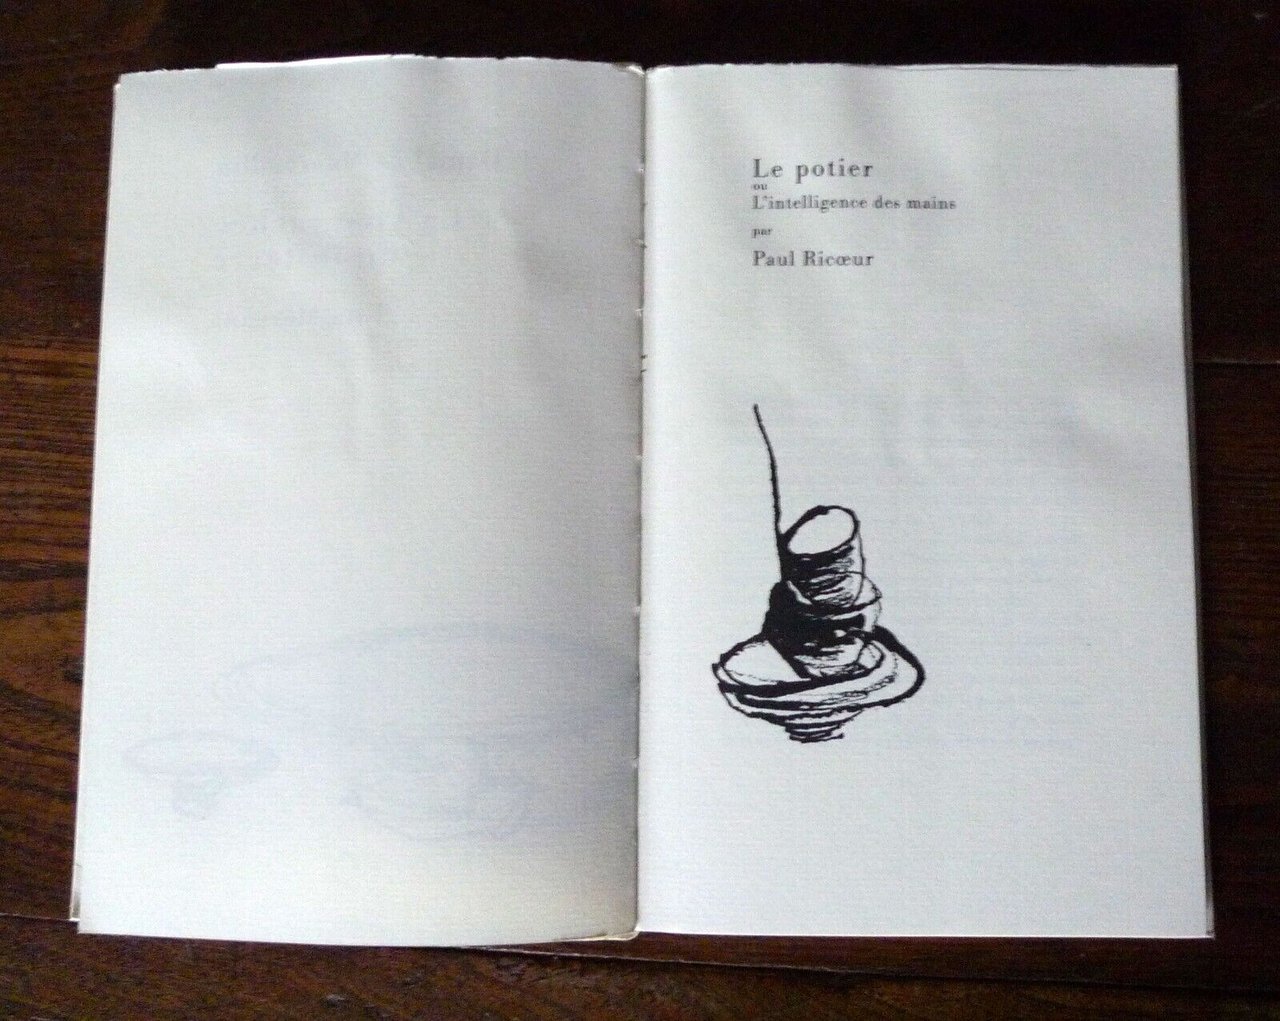 Le potier
ou
L'intelligence des mains
par
Paul Ricœur